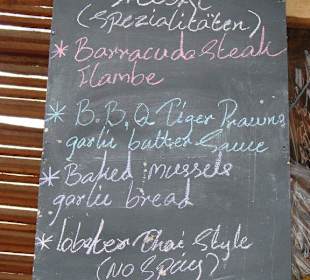 (spezialitäten)
* Barracuda Steak
flambe
* B.B.Q Tiger Prawns
garlic butter Sauce
* Baked mussels
garlic bread
* lobster Thai Style
(NO Spicy)